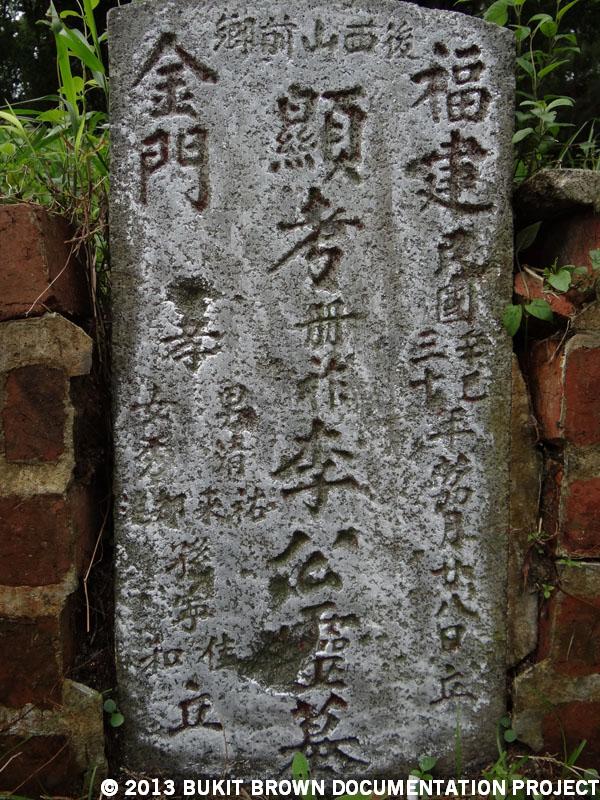 後西山前鄉
福建
民國辛巳三十年荔月廿八日立
顯考冊祚李公墓
金門
孝
男清
祐
來
女秀
孫
和
立
© 2013 BUKIT BROWN DOCUMENTATION PROJECT